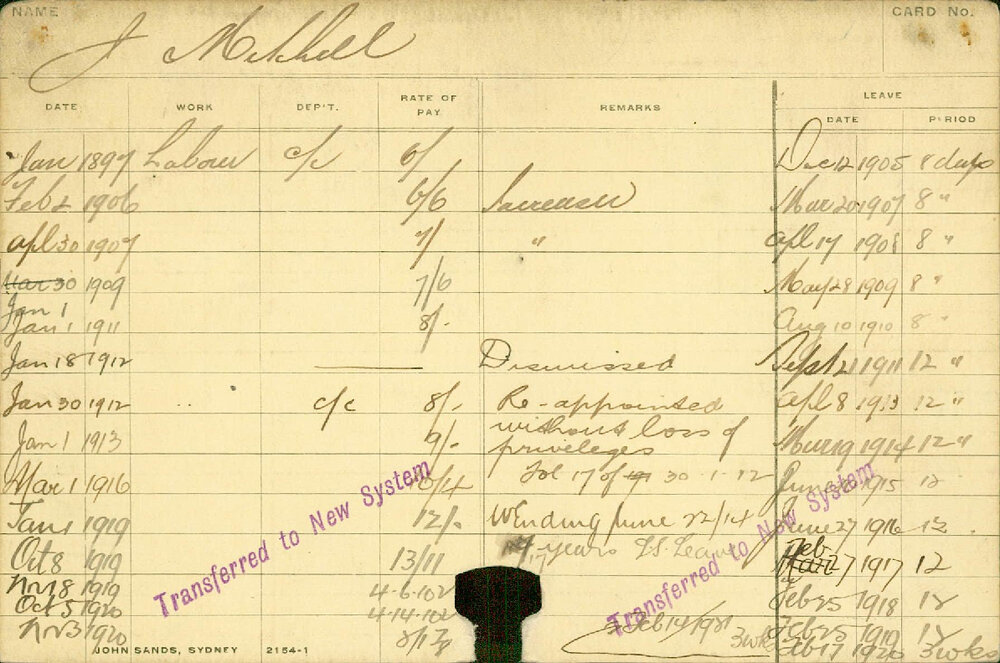 NAME CARD No.
J Mitchell
LEAVE
DATE WORK DEP'T. RATE OF PAY REMARKS DATE PERIOD
Jan 1897 Labour c/c 6/ Dec 12 1905 8 days
Feb 2 1906 6/6 Increase Mar 20 1907 8 "
Apl 30 1907 7/ " Apl 17 1908 8 "
Mar 30 1909 7/6 May 28 1909 8 "
Jan 1
Jan 1 1911 8/- Aug 10 1910 8 "
Jan 18 1912 Dismissed Sept 21 1911 12 "
Jan 30 1912 c/c 8/- Re-appointed Apl 8 1913 12 "
without loss of
Jan 1 1913 9/- privileges Mar 19 1914 12 "
Mar 1 1916 /4 Fol 17 of 30-1-12 June 1915 12
Jan 1 1919 12/- W Ending June 22/14 June 27 1916 12
Oct 8 1919 13/11 17 years Feb 27 1917 12
Nov 18 1919 4-6-10 Feb 25 1918 12
Oct 5 1920 4-14-10
Nov 3 1920 Feb 14/1921 3wks Feb 25 1919 12
Feb 17 1920 3wks
Transferred to New System
Transferred to New System
JOHN SANDS, SYDNEY 2154-1